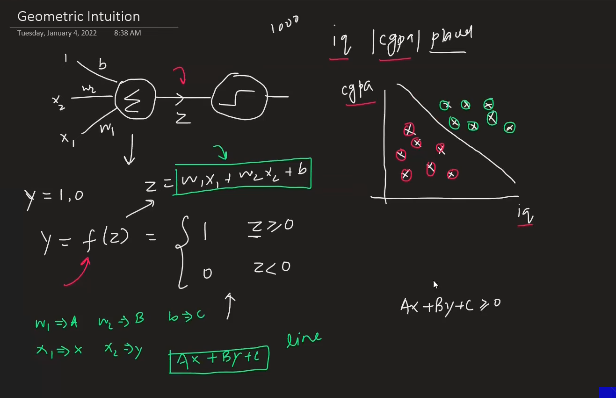 Geometric Intuition
Tuesday, January 4, 2022 8:38 AM
1000
iq | cgpa | placed
1 b
x₂ w₂ Σ z
x₁ w₁
z = w₁x₁ + w₂x₂ + b
y = 1,0
y = f(z) = { 1 z ≥ 0
0 z < 0
w₁ ⇒ A w₂ ⇒ B b ⇒ C
x₁ ⇒ x x₂ ⇒ y Ax + By + C line
cgpa
iq
Ax + By + C ≥ 0